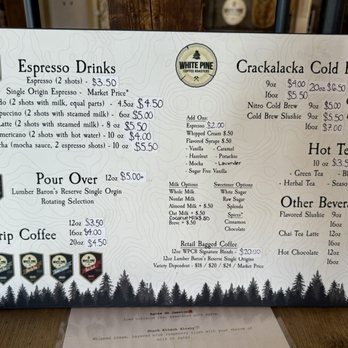 Espresso Drinks
Espresso (2 shots) - $3.50
Single Origin Espresso - Market Price*
(2 shots with milk, equal parts) - 4.5oz $4.50
(2 shots with steamed milk) - 6oz $5.00
Latte (2 shots with steamed milk) - 8oz $5.50
(2 shots with hot water) - 8oz $4.00
(mocha sauce, 2 espresso shots) - $5.50
Pour Over 12oz $5.00+
Lumber Baron's Reserve Single Orgin
Rotating Selection
Drip Coffee
12oz $3.50
16oz $4.00
20oz $4.50
WHITE PINE
COFFEE ROASTERS
Add Ons:
Espresso $2.00
Whipped Cream $.50
Flavored Syrups $.50
- Vanilla - Caramel
- Hazelnut - Pistachio
- Mocha - Lavender
- Sugar Free Vanilla
Milk Options
Whole Milk
Nonfat Milk
Almond Milk + $.50
Oat Milk + $.50
Coconut Milk $.50
Breve
Sweetener Options
White Sugar
Raw Sugar
Splenda
Spices*
Cinnamon
Chocolate
Retail Bagged Coffee
12oz WPCR Signature Blends - $20.00
12oz Lumber Baron's Reserve Single Origin
Variety Dependent - $18 / $20 / $24 / Market Price
Crackalacka Cold
9oz $4.00 20oz $6.50
16oz $5.50
Nitro Cold Brew 9oz $5.00
Cold Brew Slushie 9oz $5.50
16oz $7.00
Hot Te
10 oz $3.5
- Green Tea - Bl
- Herbal Tea - Seaso
Other Bever
Flavored Slushie 9oz
16oz
Chai Tea Latte 12oz
16oz
Hot Chocolate 12oz
16oz